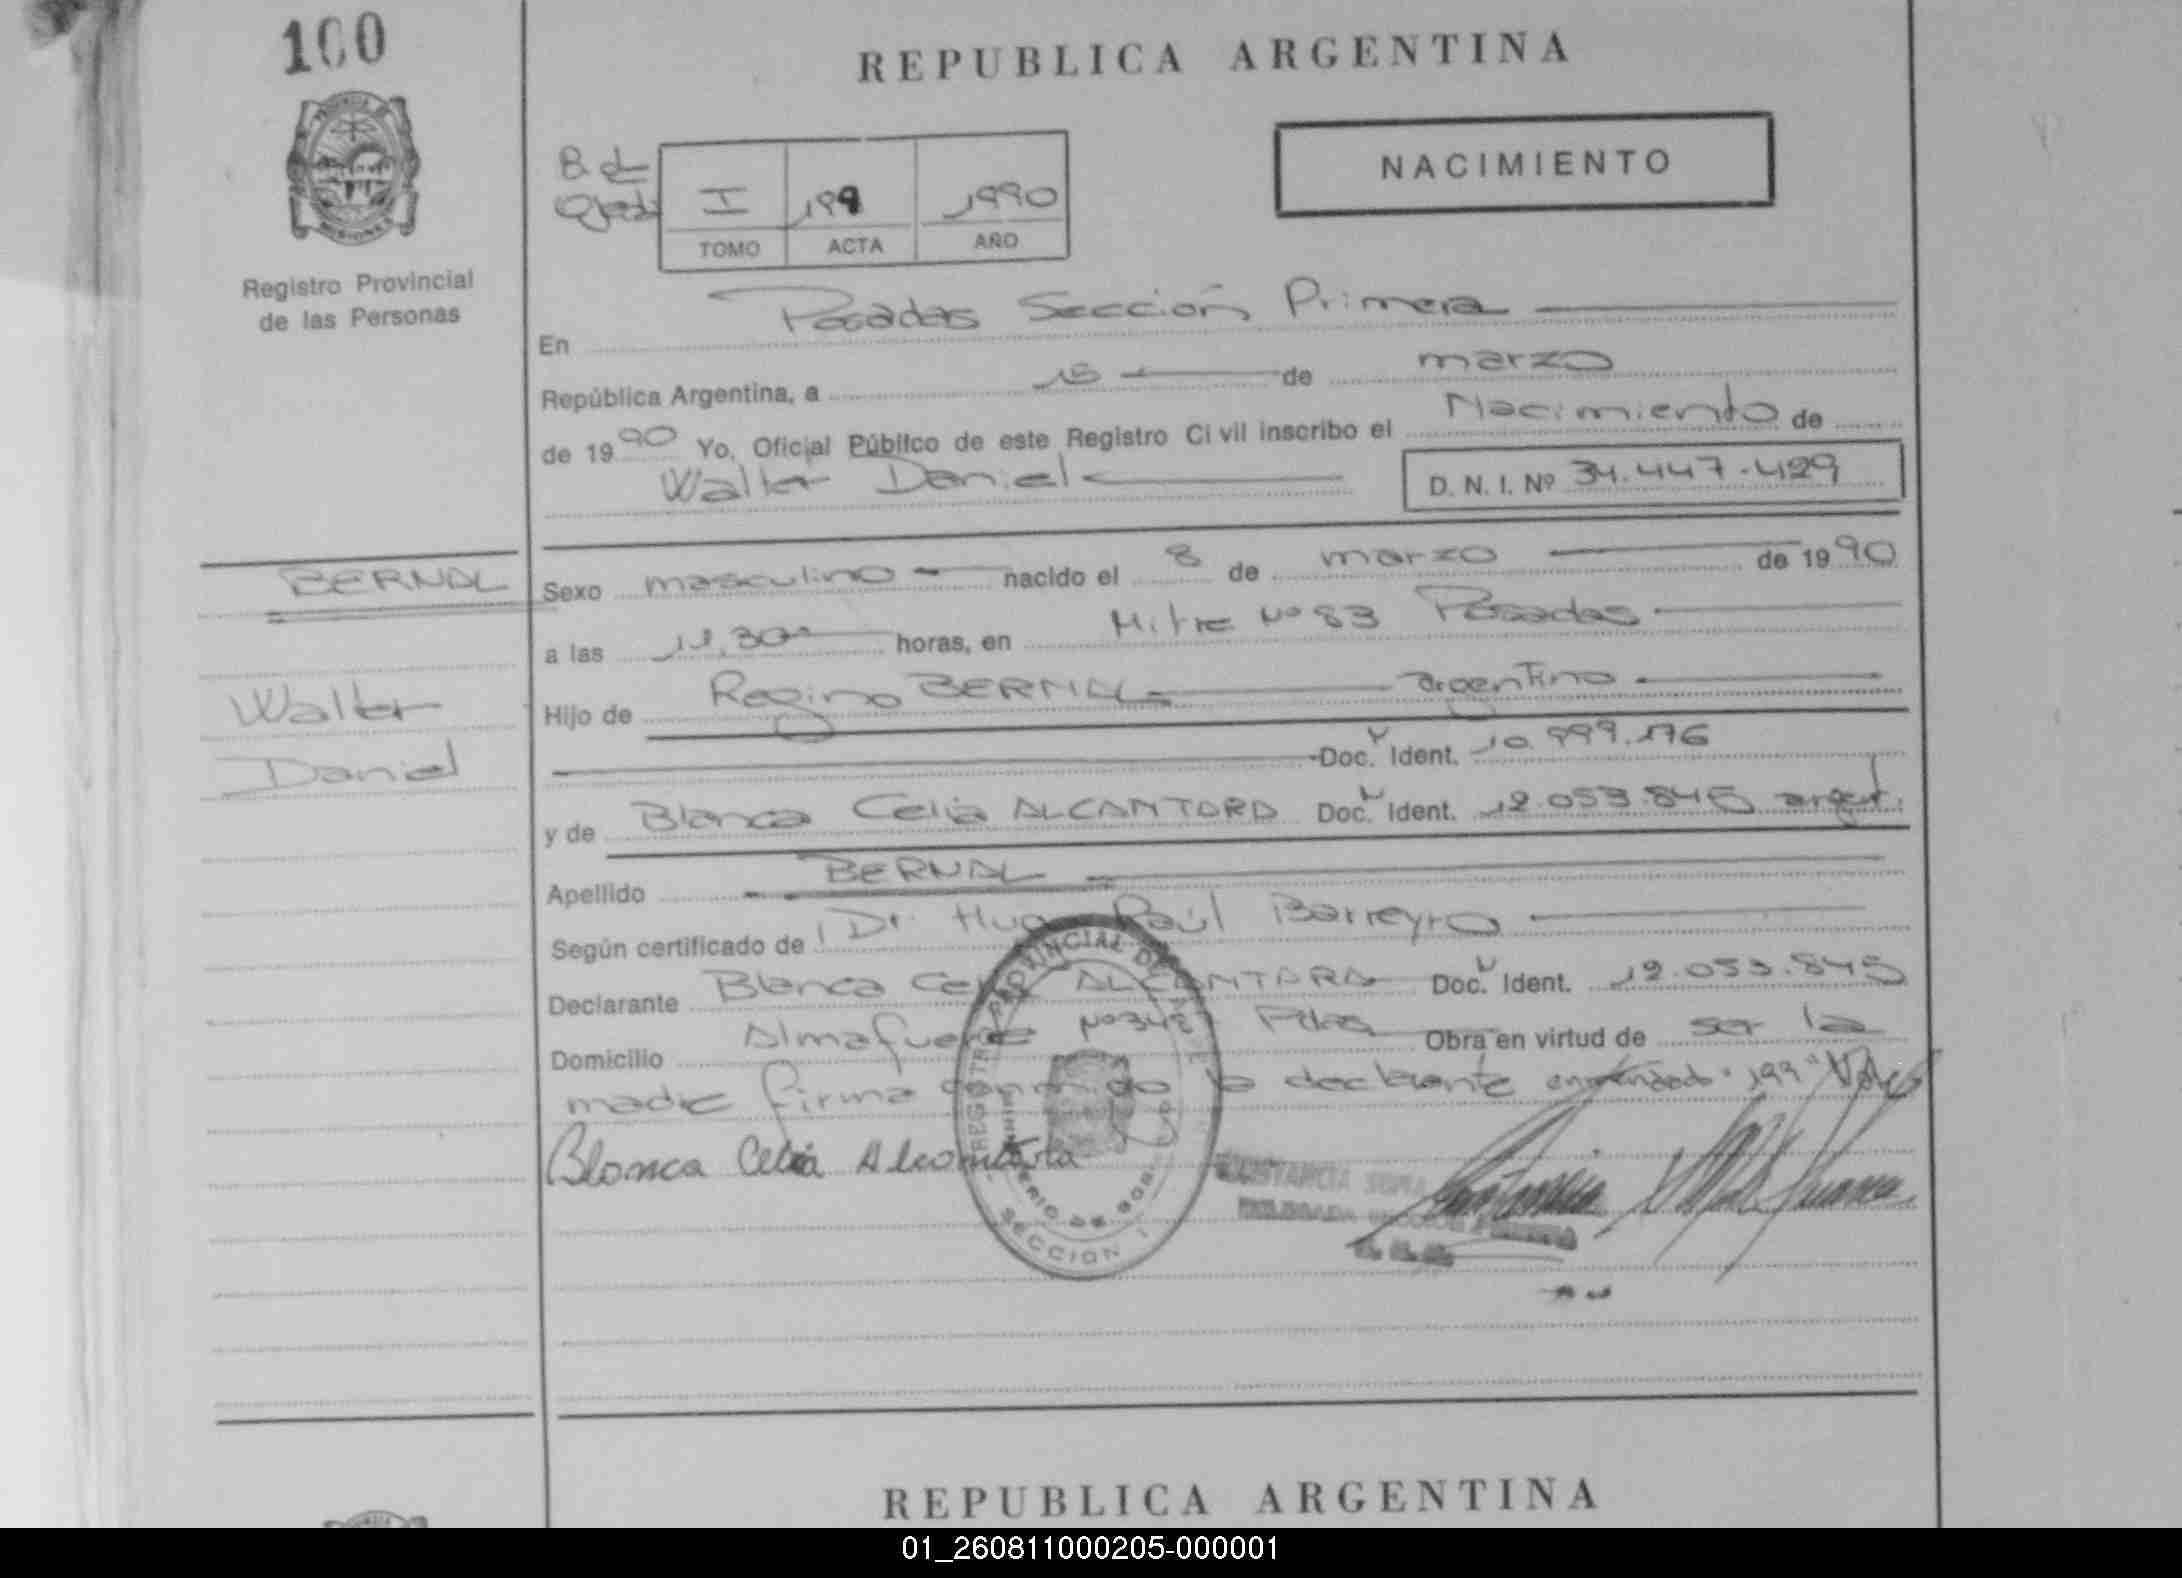 100
REPUBLICA ARGENTINA
NACIMIENTO
B. de
I 199 1990
TOMO ACTA AÑO
Registro Provincial
de las Personas
En Posadas Sección Primera
República Argentina, a 15 de marzo
de 1990 Yo, Oficial Público de este Registro Civil inscribo el Nacimiento de
Walter Daniel D. N. I. Nº 34.447.429
BERNAL
Sexo masculino nacido el 8 de marzo de 1990
a las 11,30 horas, en Mitre Nº 83 Posadas
Walter
Hijo de Regino BERNAL argentino
Daniel
Doc. Ident. 10.999.176
y de Blanca Celia ALCANTARA Doc. Ident. 12.053.845 argent.
Apellido BERNAL
Según certificado de Dr. Hugo Raúl Barreyro
Declarante Blanca Celia ALCANTARA Doc. Ident. 12.053.845
Domicilio Almafuerte Nº 348 Pdas Obra en virtud de ser la
madre firma conmigo la declarante enmendado "199" Vale
Blanca Celia Alcantara
REGISTRO PROVINCIAL DE
MINISTERIO DE GOB.
SECCION 1
REPUBLICA ARGENTINA
01_260811000205-000001